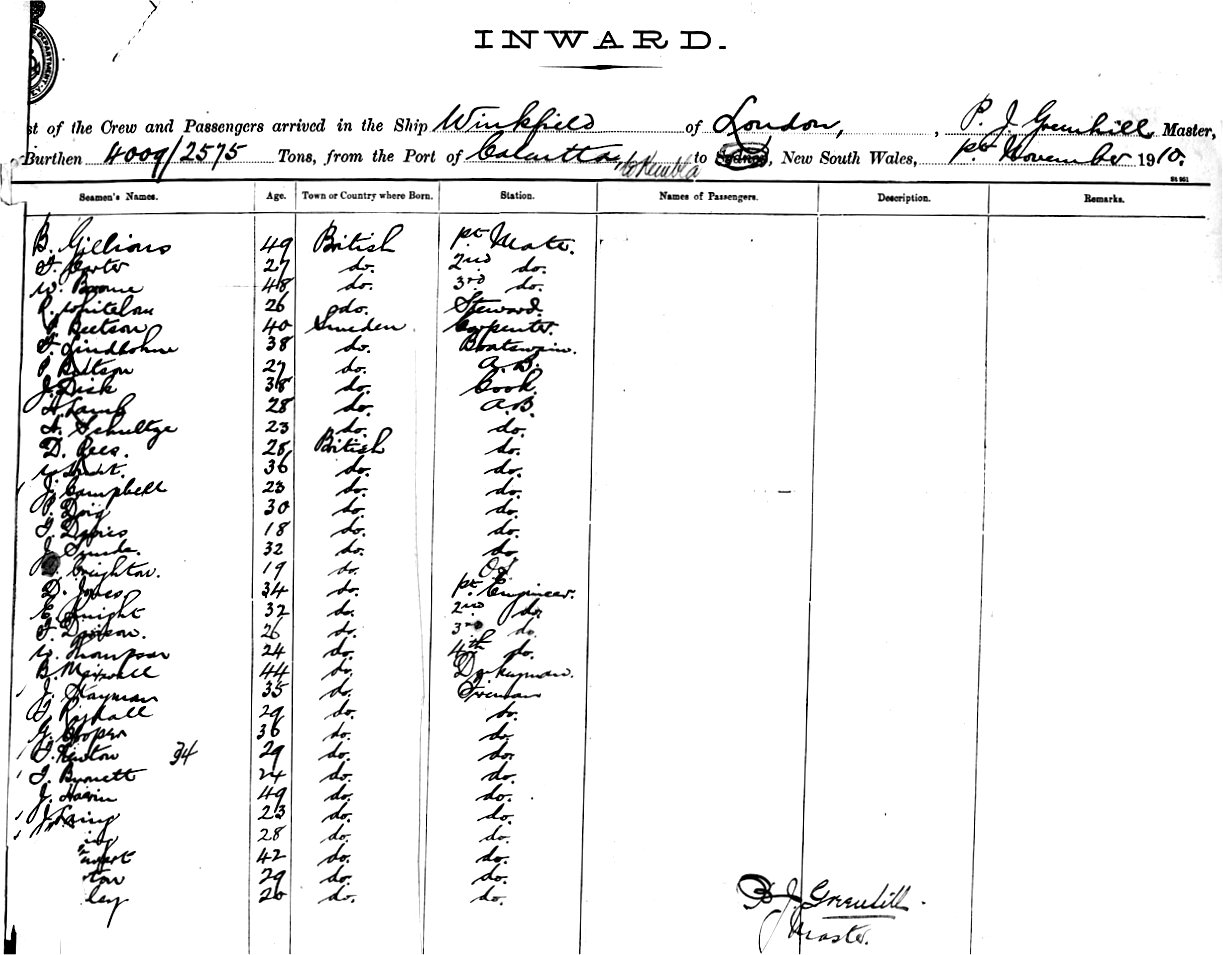 INWARD.
st of the Crew and Passengers arrived in the Ship Winkfield of London, , P. J. Greenhill Master,
Burthen 4009/2575 Tons, from the Port of Calcutta, to Kembla to Sydney, New South Wales, 1st November 1910.
St 951
Seamen's Names. Age. Town or Country where Born. Station. Names of Passengers. Description. Remarks.
B. Gillions 49 British 1st Mate.
F. Carter 27 do. 2nd do.
W. 48 do. 3rd do.
R. Whitelaw 26 do. Steward.
Beetson 40 Sweden Carpenter.
F. Lindbohm 38 do. Boatswain.
P. 27 do. A.B.
J. Disk 38 do. Cook
A. Lamb 28 do. A.B.
A. Schultze 23 do. do.
D. Rees. 28 British do.
W. 36 do. do.
J. Campbell 23 do. do.
P. Doig 30 do. do.
T. Davies 18 do. do.
J. 32 do. do.
Crighton. 19 do. O.S.
D. Jones 34 do. 1st Engineer.
E. Knight 32 do. 2nd do.
F. 26 do. 3rd do.
W. Thompson 24 do. 4th do.
B. Maxwell 44 do. Donkeyman.
J. Hayman 35 do. Fireman
29 do. do.
G. Cooper 36 do. do.
T. Newton 34 29 do. do.
T. Burnett 24 do. do.
J. 49 do. do.
J. Laing 23 do. do.
ing 28 do. do.
42 do. do.
ton 29 do. do.
ley 20 do. do.
P. J. Greenhill.
Master.